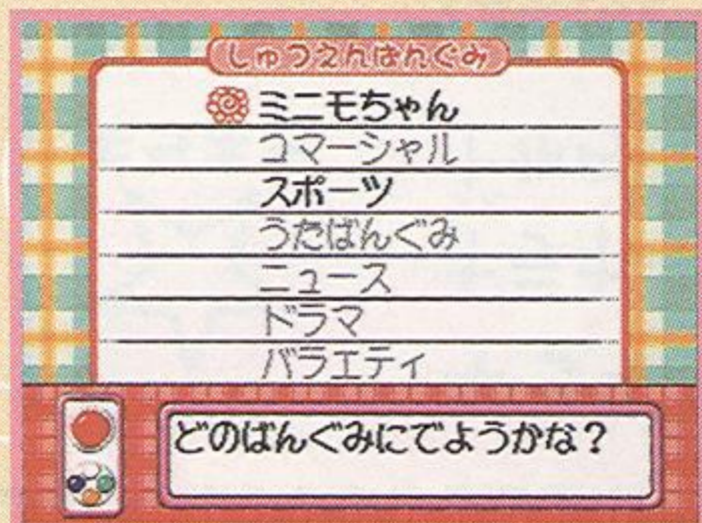 しゅつえんばんぐみ
ミニモちゃん
コマーシャル
スポーツ
うたばんぐみ
ニュース
ドラマ
バラエティ
どのばんぐみにでようかな？